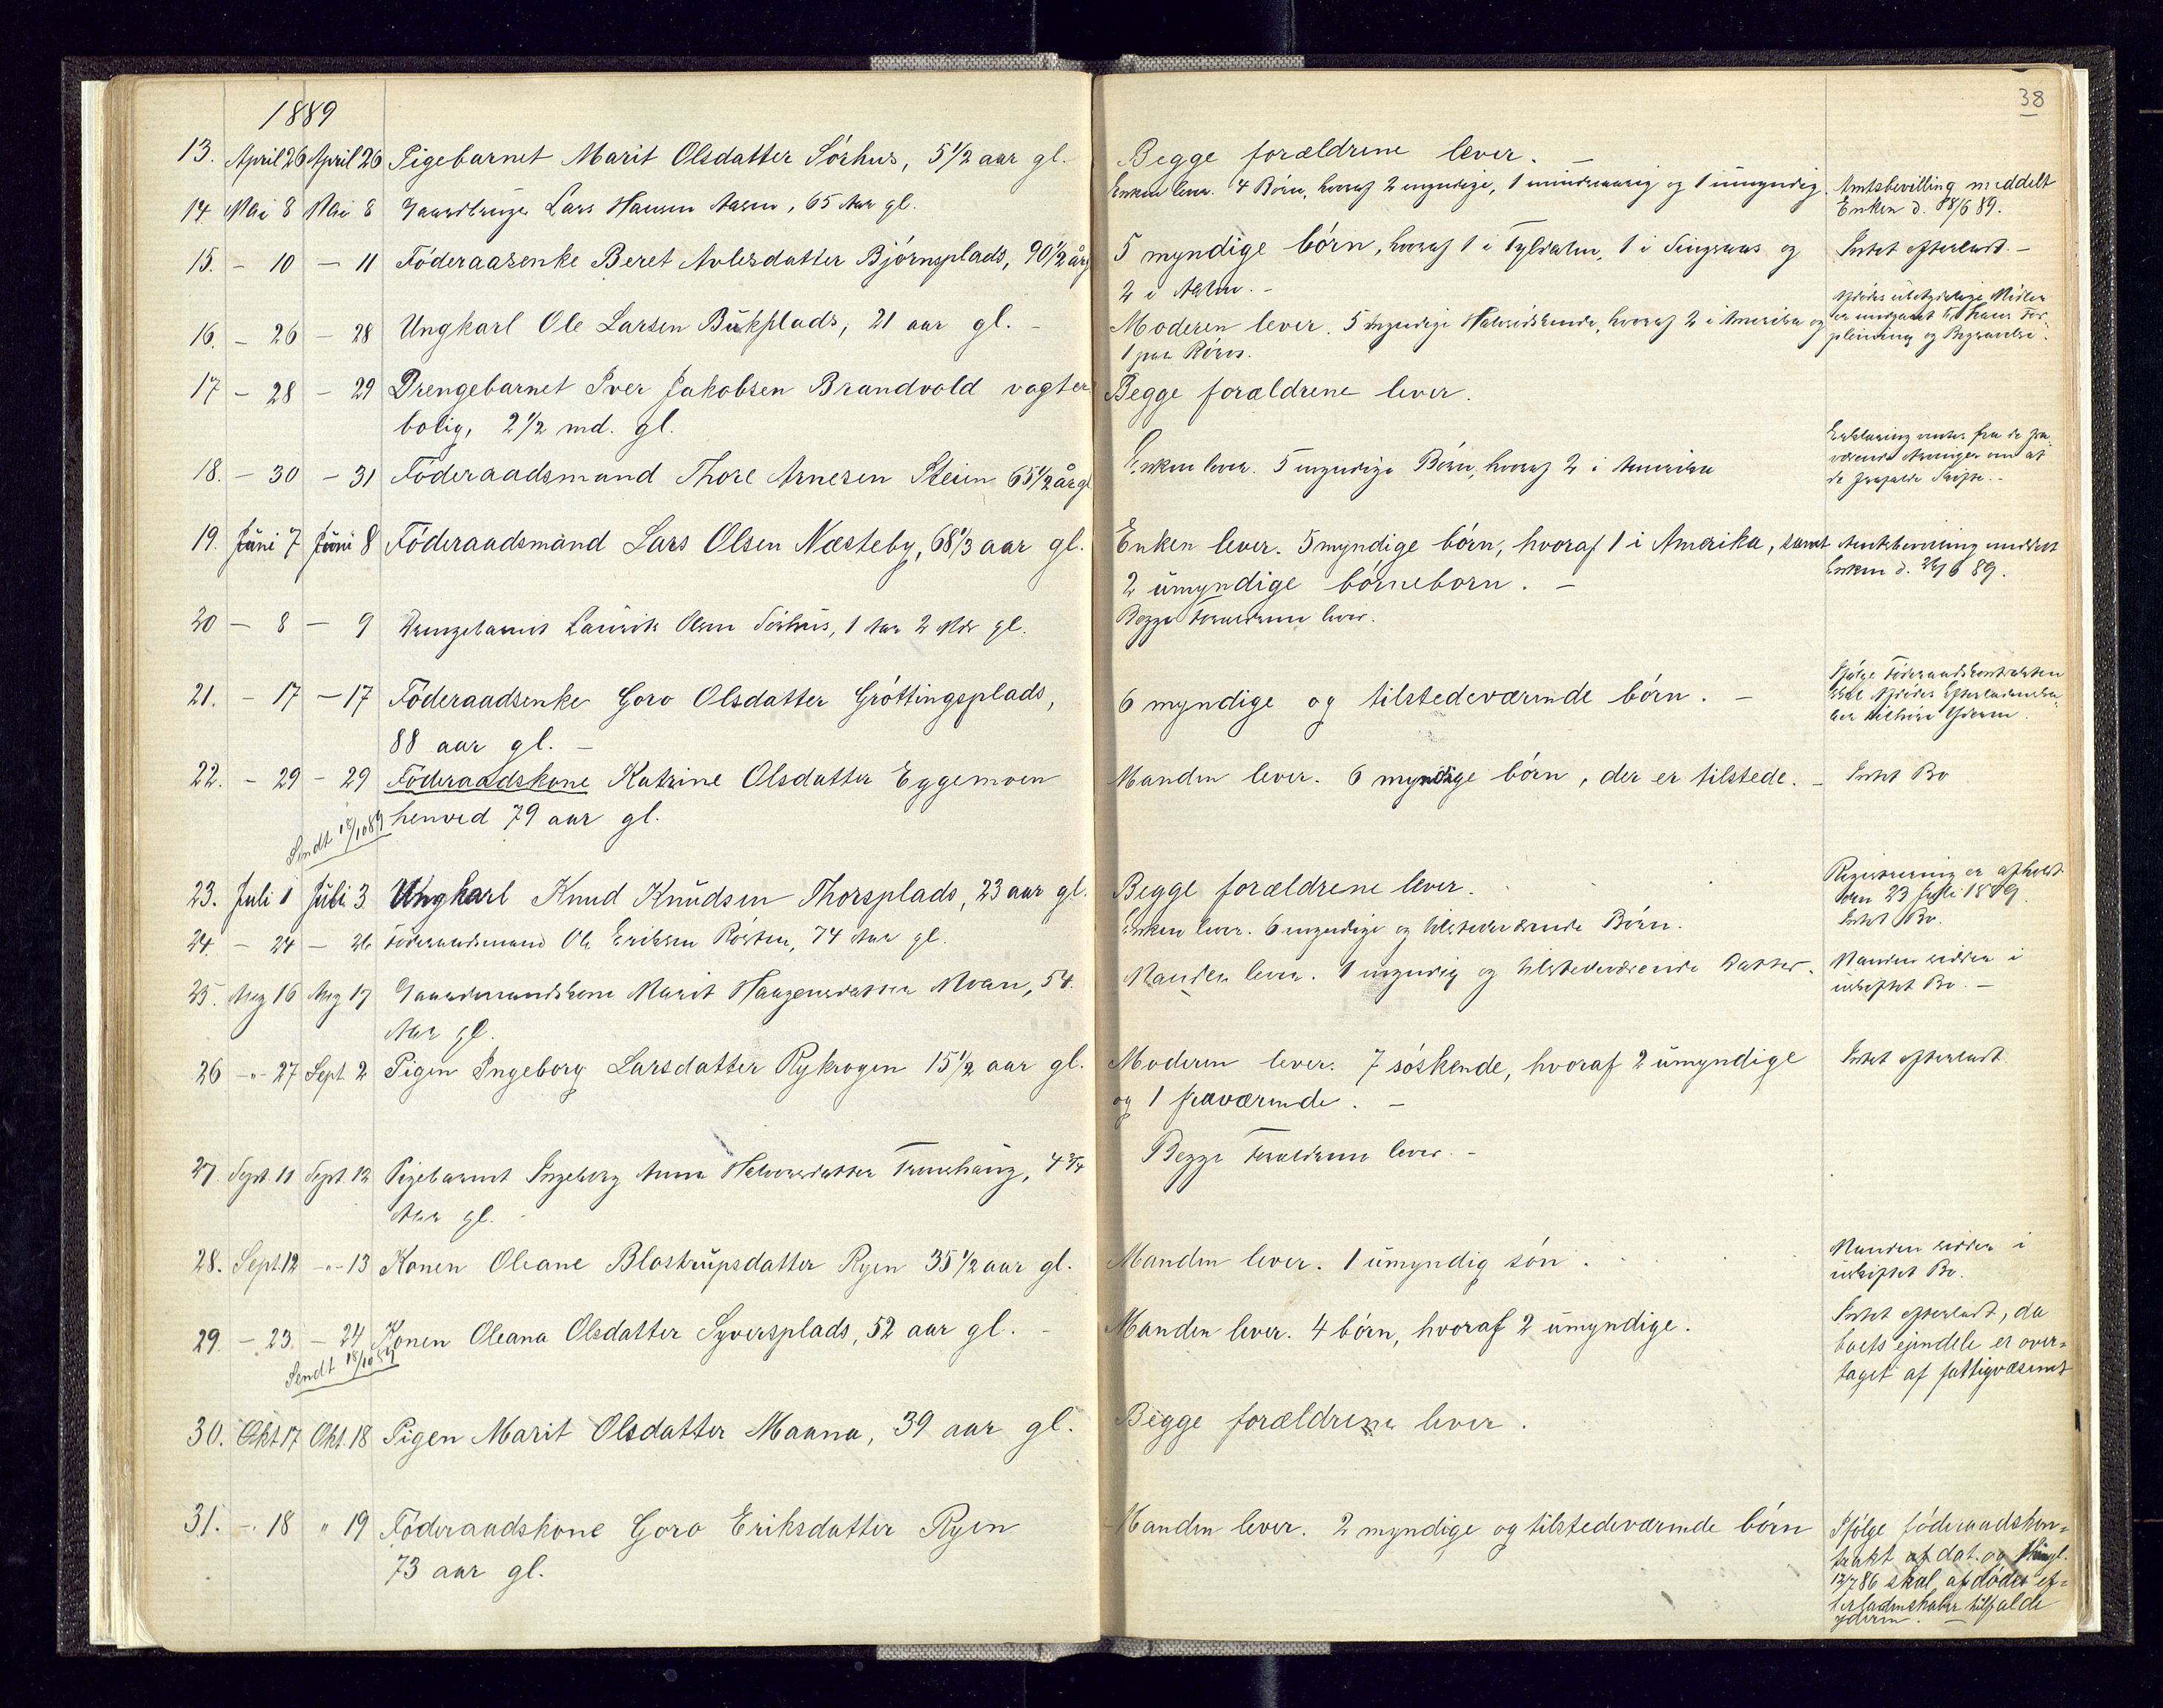 38
1889
13. April 26 April 26 Pigebarnet Marit Olsdatter Sórhus, 5 1/2 aar gl. Begge forældrene lever. –
14. Mai 8 Mai 8 Gaardbruger Lars Hansen Aasen, 65 Aar gl. Enken lever. 4 Børn, hvoraf 2 myndige, 1 mindreaarig og 1 umyndig. Amtsbevilling meddelt
Enken d. 18/6 89.
15. – 10 – 11 Föderaadsenke Beret Bjórnplads, 90 1/2 år g 5 myndige börn, hvoraf 1 i Tyldalen, 1 i Singsaas og Intet efterladt. –
2 i Aalen. –
16. – 26 – 28 Ungkarl Ole Larsen Bukplads, 21 aar gl. – Moderen lever. 5 myndige Halvsödskende, hvoraf 2 i Amerika og
1 paa Röros. pleining og Begravelse.
17 – 28 – 29 Drengebarnet Iver Jakobsen Brandvold vogter Begge forældrene lever.
bolig, 2 1/2 md. gl.
18. – 30 – 31 Föderaadsmand Thore Arnesen Steien 65 1/2 år gl Enken lever. 5 myndige Börn, hvoraf 2 i Amerika Erklæring ventes fra de fra-
værende Arvinger om at
de frafalde Skifte. –
19. Juni 7 Juni 8 Föderaadsmand Lars Olsen Næsteby, 68 1/3 aar gl. Enken lever. 5 myndige börn, hvoraf 1 i Amerika, samt Amtsbevilling meddelt
2 umyndige börneborn. – Enken d. 6 89.
20 – 8 – 9 Drengebarnet Laurits Olsen Sörhus, 1 Aar 2 Mdr gl. Begge Forældrene lever.
21. – 17 – 17 Föderaadsenke Goro Olsdatter Gröttingsplads, 6 myndige og tilstedeværende börn. – Ifölge Föderaadskontrakten
88 aar gl. – skal Afdödes Efterladenska-
ber tilhöre Yderen.
22. – 29 – 29 Föderaadskone Katrine Olsdatter Eggemoen Manden lever. 6 myndige börn, der er tilstede. – Intet Bo
henved 79 aar gl.
Sendt 18/10 89
23. Juli 1 Juli 3 Ungkarl Knud Knudsen Thorsplads, 23 aar gl. Begge forældrene lever. Registrering er afholdt
den 23 Juli 1889.
24. – 24 – 26 Föderaadsmand Ole Eriksen Rösten, 74 Aar gl. Enken lever. 6 myndige og tilstedeværende Börn. Intet Bo.
25. Aug 16 Aug 17 Gaardmandskone Marit Haagensdatter Moan, 54 Manden lever. 1 myndig og tilstedeværende Datter. Manden sidder i
Aar gl. uskiftet Bo. –
26 –"– 27 Sept. 2 Pigen Ingeborg Larsdatter Rykrogen 15 1/2 aar gl. Moderen lever. 7 söskende, hvoraf 2 umyndige Intet efterladt.
og 1 fraværende. –
27. Sept. 11 Sept. 12 Pigebarnet Ingeborg Anna Halvorsdatter Tronshaug, 4 3/4 Begge Forældrene lever. –
Aar gl.
28. Sept. 12 –"– 13 Konen Oleane Blostrupsdatter Ryen 35 1/2 aar gl. Manden lever. 1 umyndig sön. Manden sidder i
uskiftet Bo.
29. – 23. – 24 Konen Oleana Olsdatter Syversplads, 52 aar gl. – Manden lever. 4 börn, hvoraf 2 umyndige. Intet efterladt, da
Sendt 18/10 89 boets ejendele er over-
taget af fattigvæsenet
30. Okt 17 Okt. 18 Pigen Marit Olsdatter Maana, 39 aar gl. Begge forældrene lever.
31. –"– 18 " 19 Föderaadskone Goro Eriksdatter Ryen Manden lever. 2 myndige og tilstedeværende börn Ifölge föderaadskon-
73 aar gl. trakt af dat. og thingl.
12/7 86 skal afdödes ef-
terladenskaber tilfalde
yderen. –